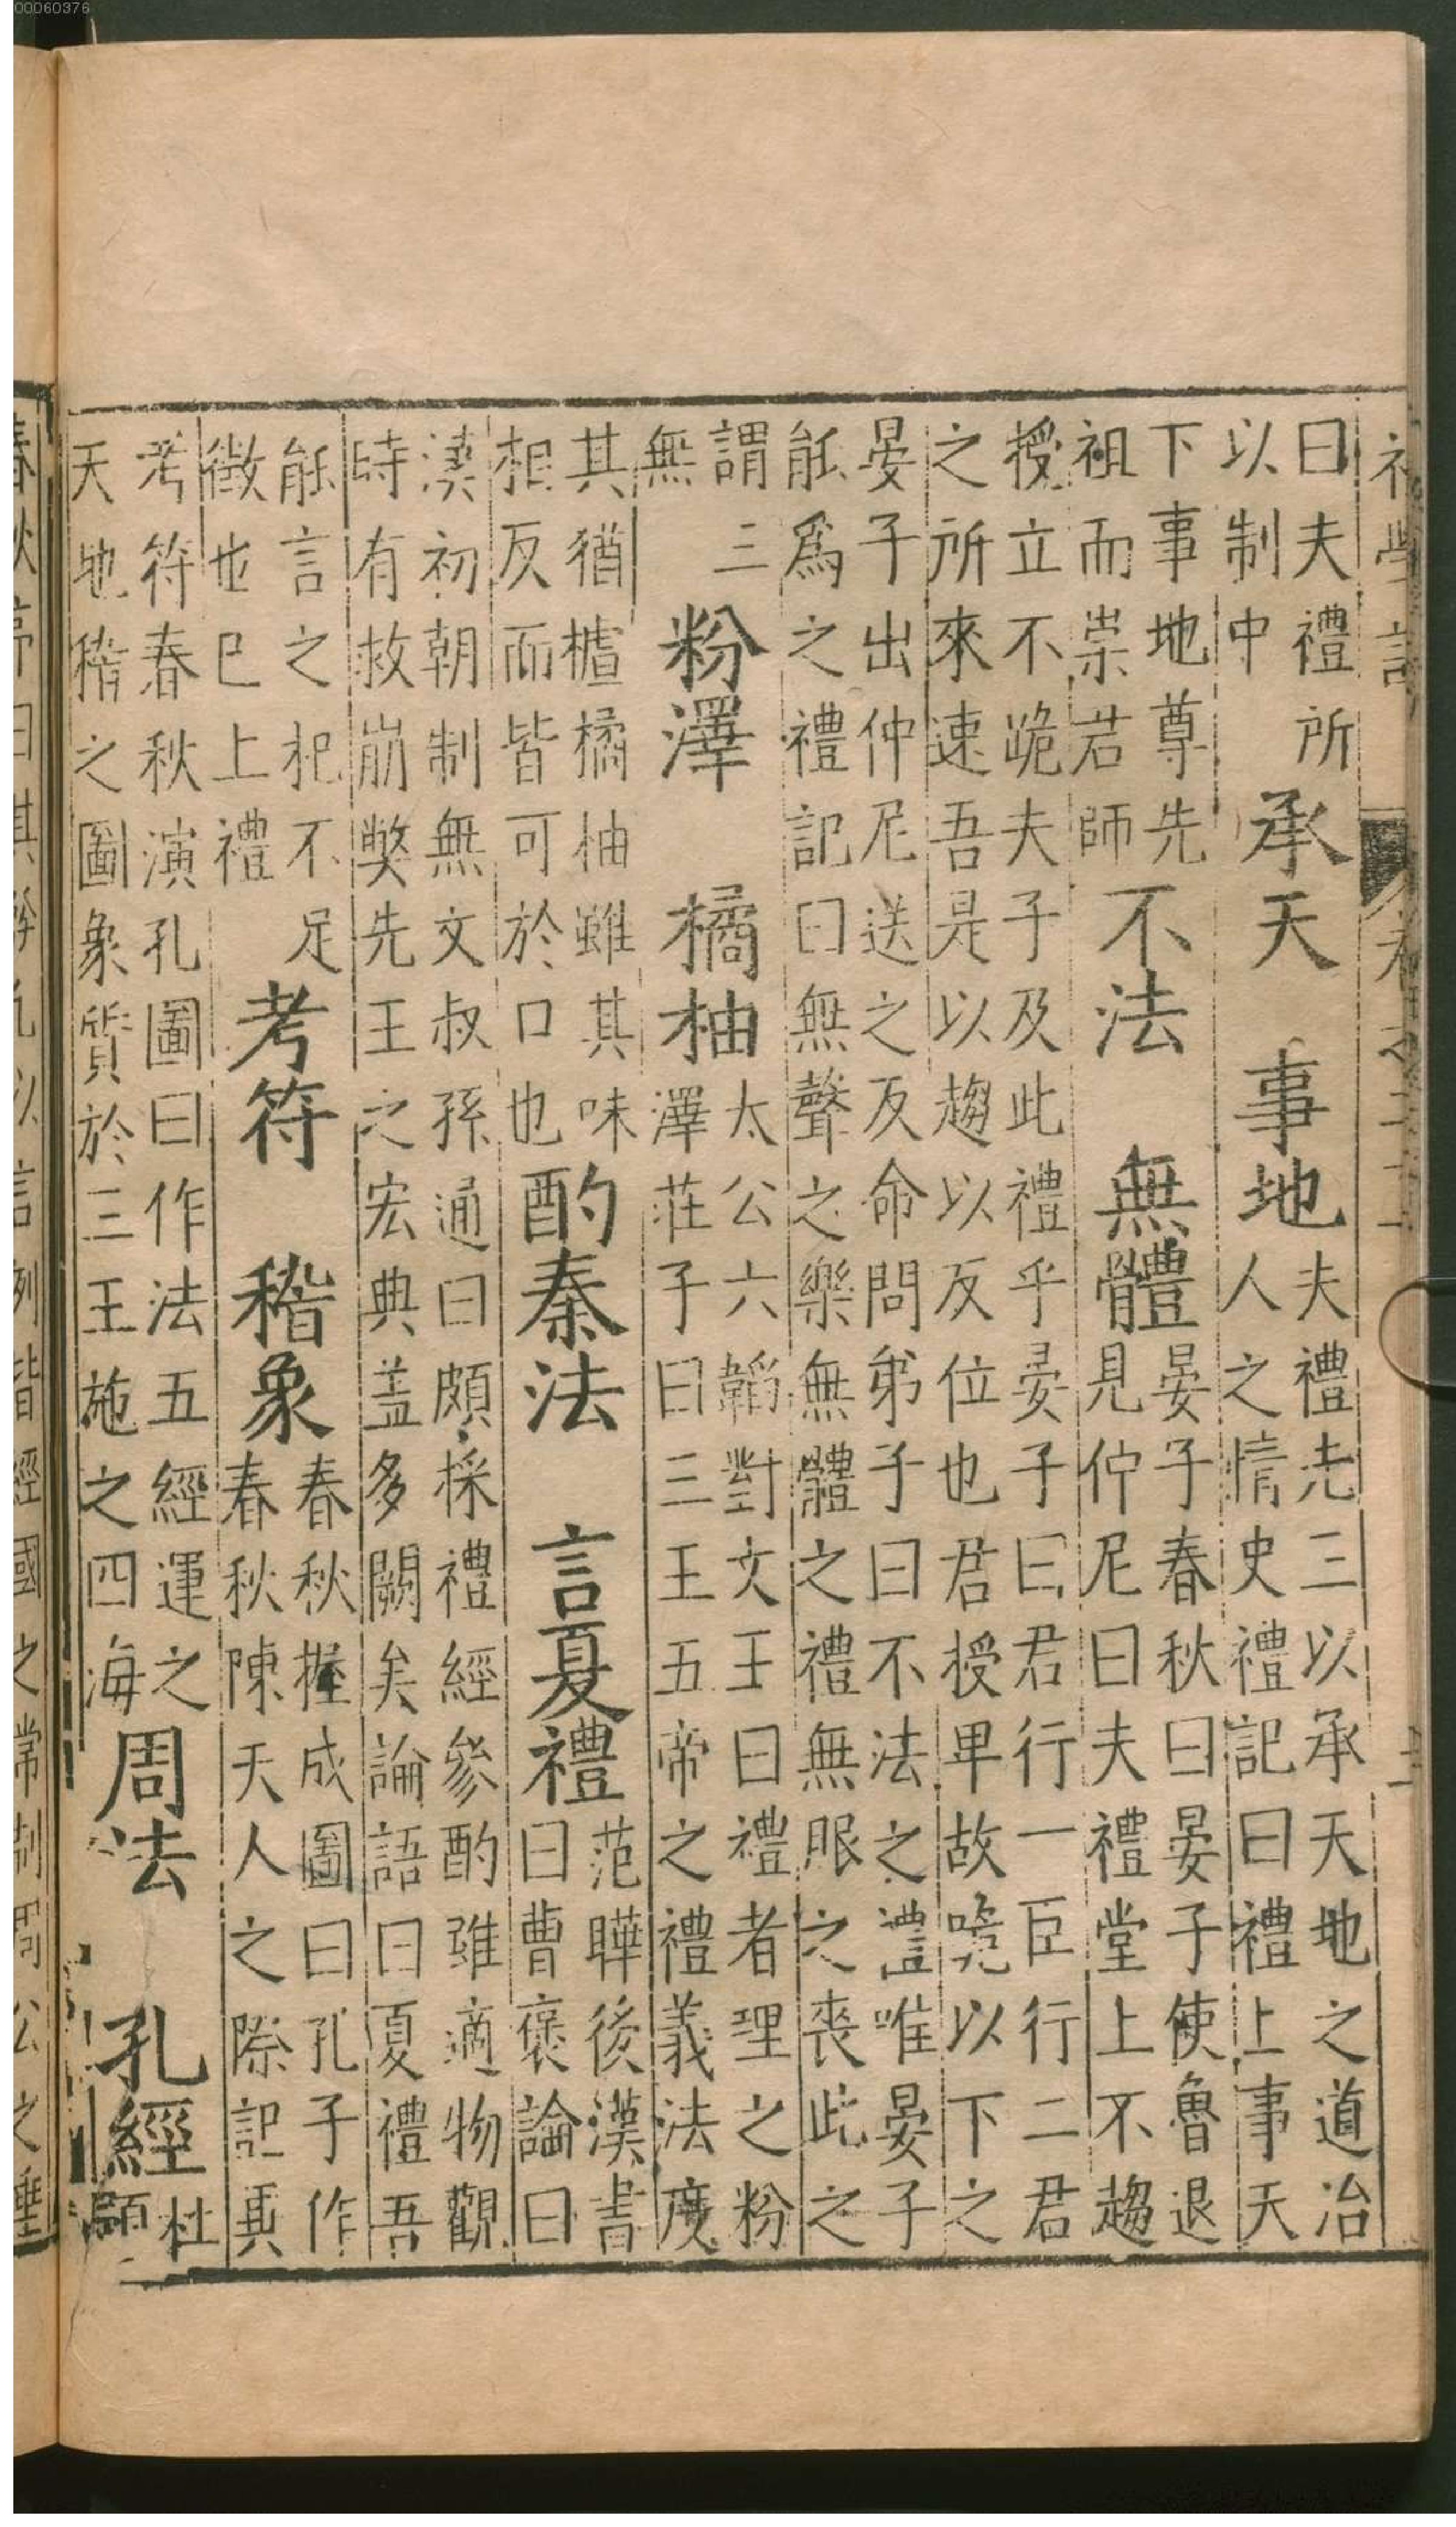 00060376
曰夫禮所
以制中
承天 事地
夫禮先三以承天地之道治
人之情史禮記曰禮上事天
下事地尊先
祖而崇君師
不法 無體
晏子春秋曰晏子使魯退
見仲尼曰夫禮堂上不趨
授立不跪夫子及此禮乎晏子曰君行一臣行二君
之所來速吾是以趨以反位也君授卑故跪以下之
晏子出仲尼送之反命問弟子曰不法之禮唯晏子
能爲之禮記曰無聲之樂無體之禮無服之喪此之
謂三
無
粉澤 橘柚
太公六韜對文王曰禮者理之粉
澤莊子曰三王五帝之禮義法度
其猶樝橘柚雖其味
相反而皆可於口也
酌秦法 言夏禮
范曄後漢書
曰曹褒論曰
漢初朝制無文叔孫通曰頗採禮經參酌雖適物觀
時有救崩獘先王之宏典盖多闕矣論語曰夏禮吾
能言之杞不足
徵也已上禮
考符 稽象
春秋握成圖曰孔子作
春秋陳天人之際記真
考符春秋演孔圖曰作法五經運之
天地稽之圖象質於三王施之四海
周法 孔經
杜